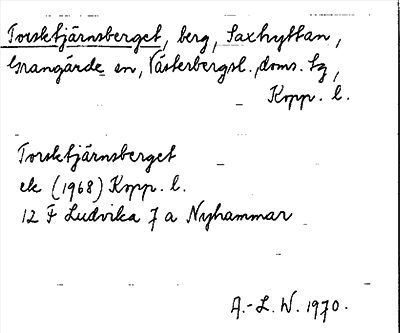 Torsktjärnsberget, berg, Saxhyttan,
Grangärde sn, Västerbergsl. doms. tg,
Kopp. l.
Torsktjärnsberget
ek (1968) Kopp. l.
12 F Ludvika 7 a Nyhammar
A.-L. W. 1970.